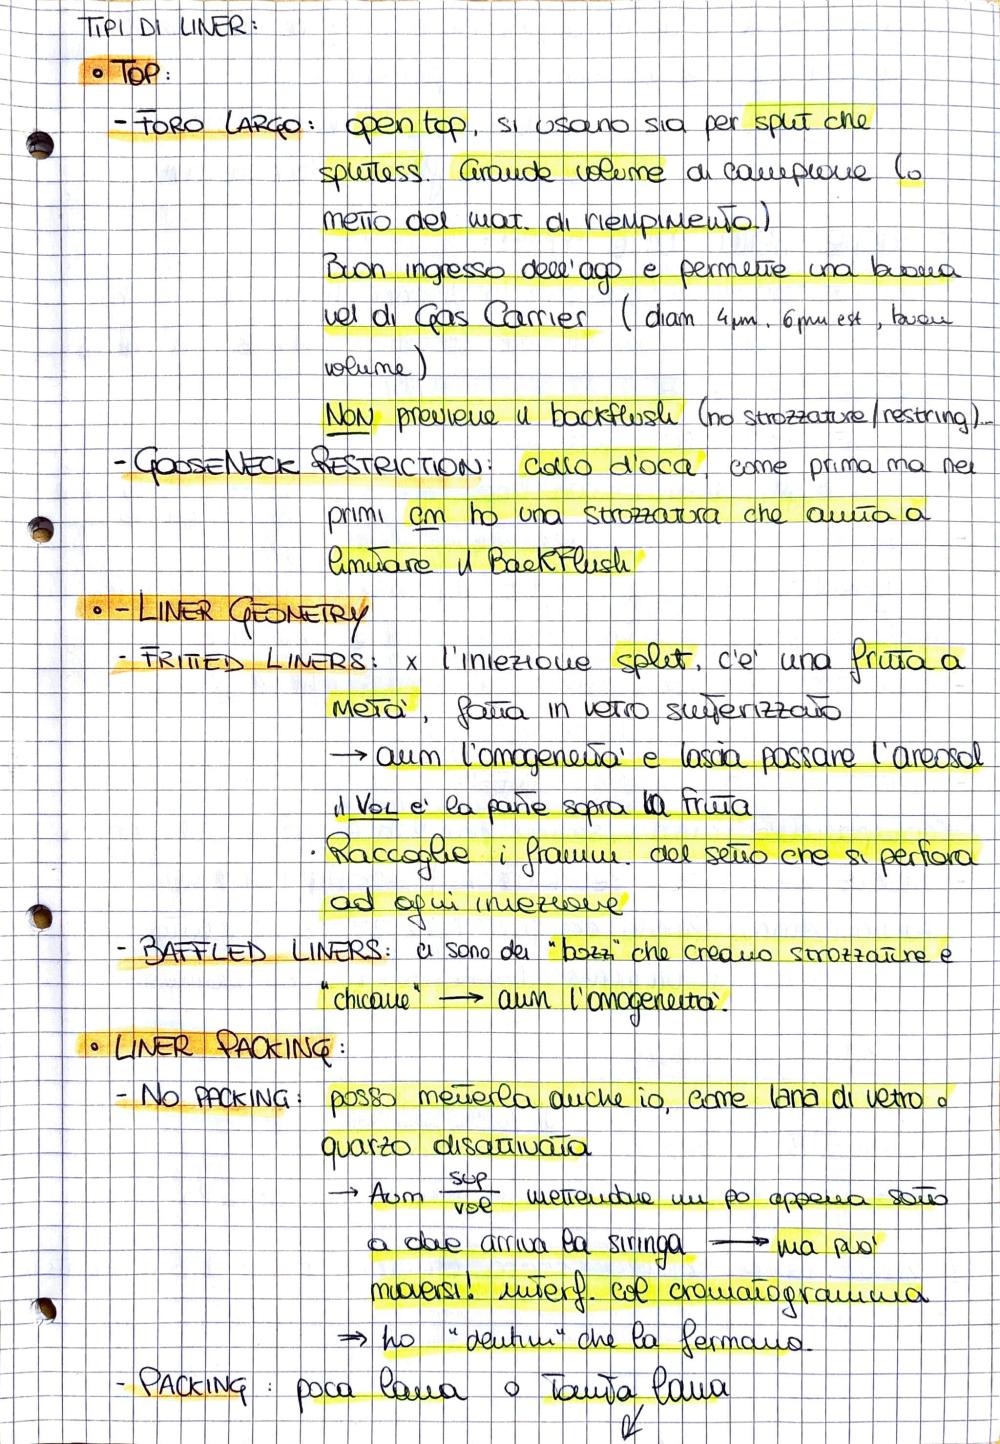 TIPI DI LINER:
• TOP:
- FORO LARGO: open top, si usano sia per split che
splitless. Grande volume di campione (o
metto del mat. di riempimento)
Buon ingresso dell'ago e permette una buona
vel di Gas Carrier ( diam 4μm, 6 mm est, buon
volume)
NON previene il backflush (no strozzature/restring)...
- GOOSENECK RESTRICTION: collo d'oca, come prima ma nei
primi cm ho una strozzatura che aiuta a
limitare il BackFlush
• - LINER GEOMETRY
- FRITTED LINERS: x l'iniezione split, c'è una fritta a
metà, fatta in vetro sinterizzato
→ aum l'omogeneità e lascia passare l'areosol
il VOL è la parte sopra la fritta
· Raccoglie i framm. del setto che si perfora
ad ogni iniezione
- BAFFLED LINERS: ci sono dei "bozzi" che creano strozzature e
"chicane" → aum l'omogeneità.
• LINER PACKING:
- NO PACKING: posso metterla anche io, come lana di vetro o
quarzo disattivata
→ Aum sup/vol mettendone un po appena sotto
a dove arriva la siringa → ma può
muoversi! interf. col cromatogramma
⇒ ho "dentini" che la fermano.
- PACKING: poca lana o tanta lana
↙